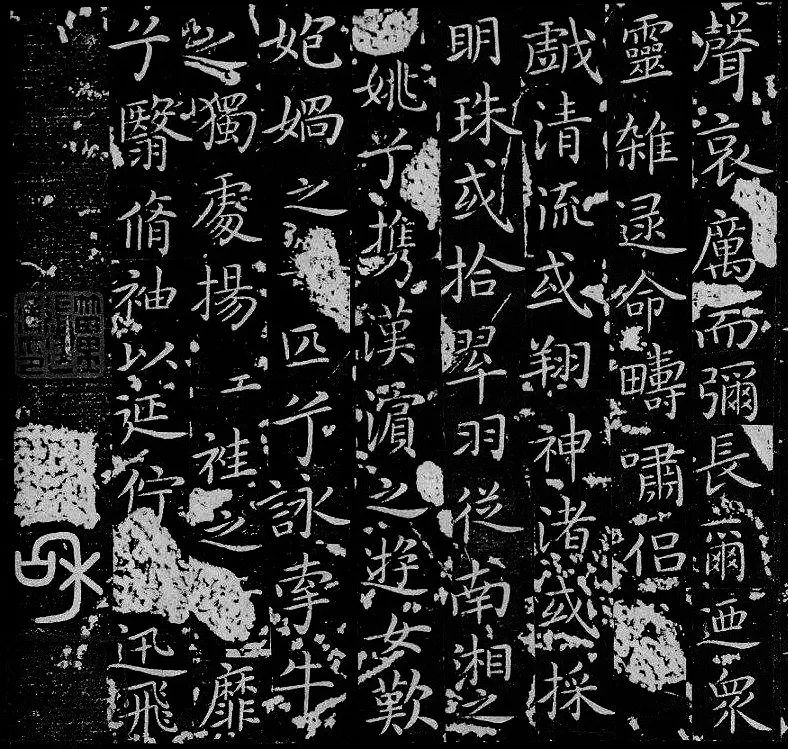 聲哀厲而彌長爾迺衆
靈雜遝命疇嘯侶
戲清流或翔神渚或採
明珠或拾翠羽従南湘之
姚兮携漢濱之遊女歎
媧之匹兮詠牽牛
之獨處揚袿之靡
兮翳脩袖以延佇迅飛